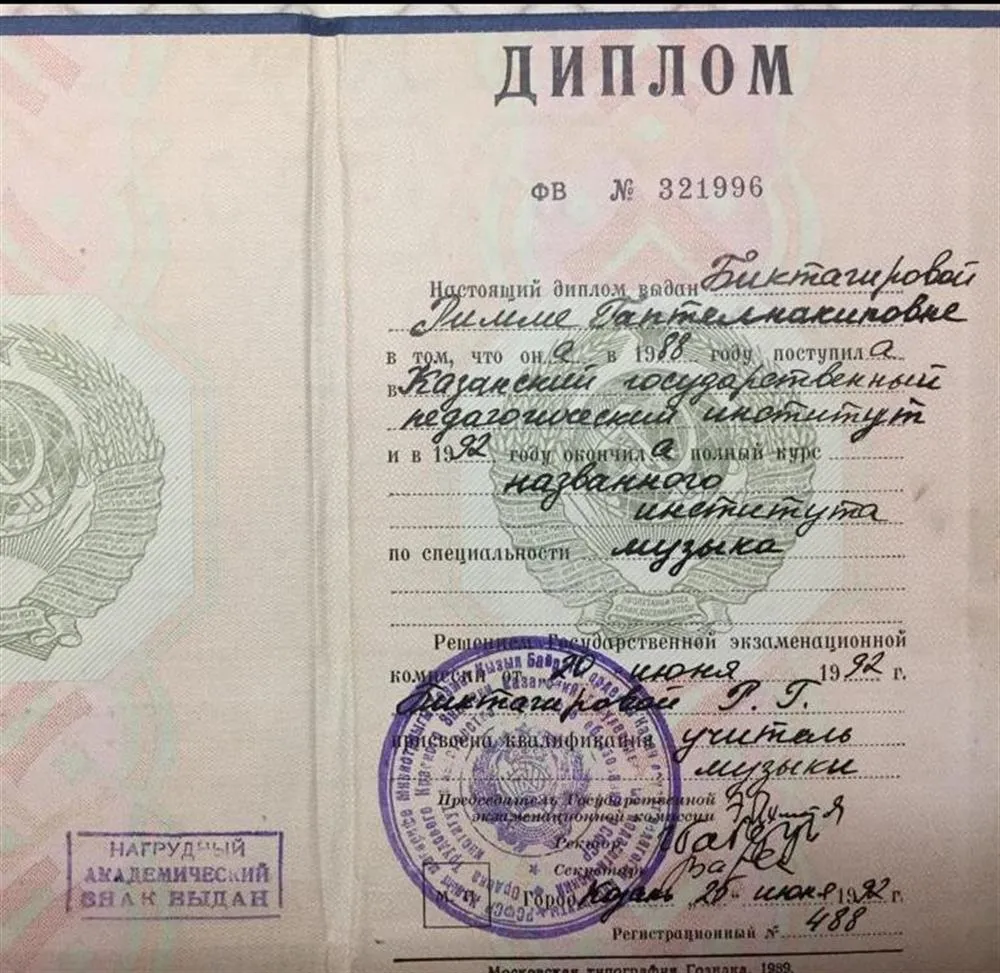 ДИПЛОМ
ФВ № 321996
Настоящий диплом выдан Биктагировой
Римме
в том, что она в 1988 году поступила
в Казанский государственный
педагогический институт
и в 1992 году окончила полный курс
названного
института
по специальности музыка
Решением Государственной экзаменационной
комиссии от 20 июня 1992 г.
Биктагировой Р. Г.
присвоена квалификация учитель
музыки
Председатель Государственной
экзаменационной комиссии
Ректор
Секретарь
Город Казань июня 1992 г.
Регистрационный № 488
Московская типография Гознака. 1989.
НАГРУДНЫЙ
АКАДЕМИЧЕСКИЙ
ЗНАК ВЫДАН